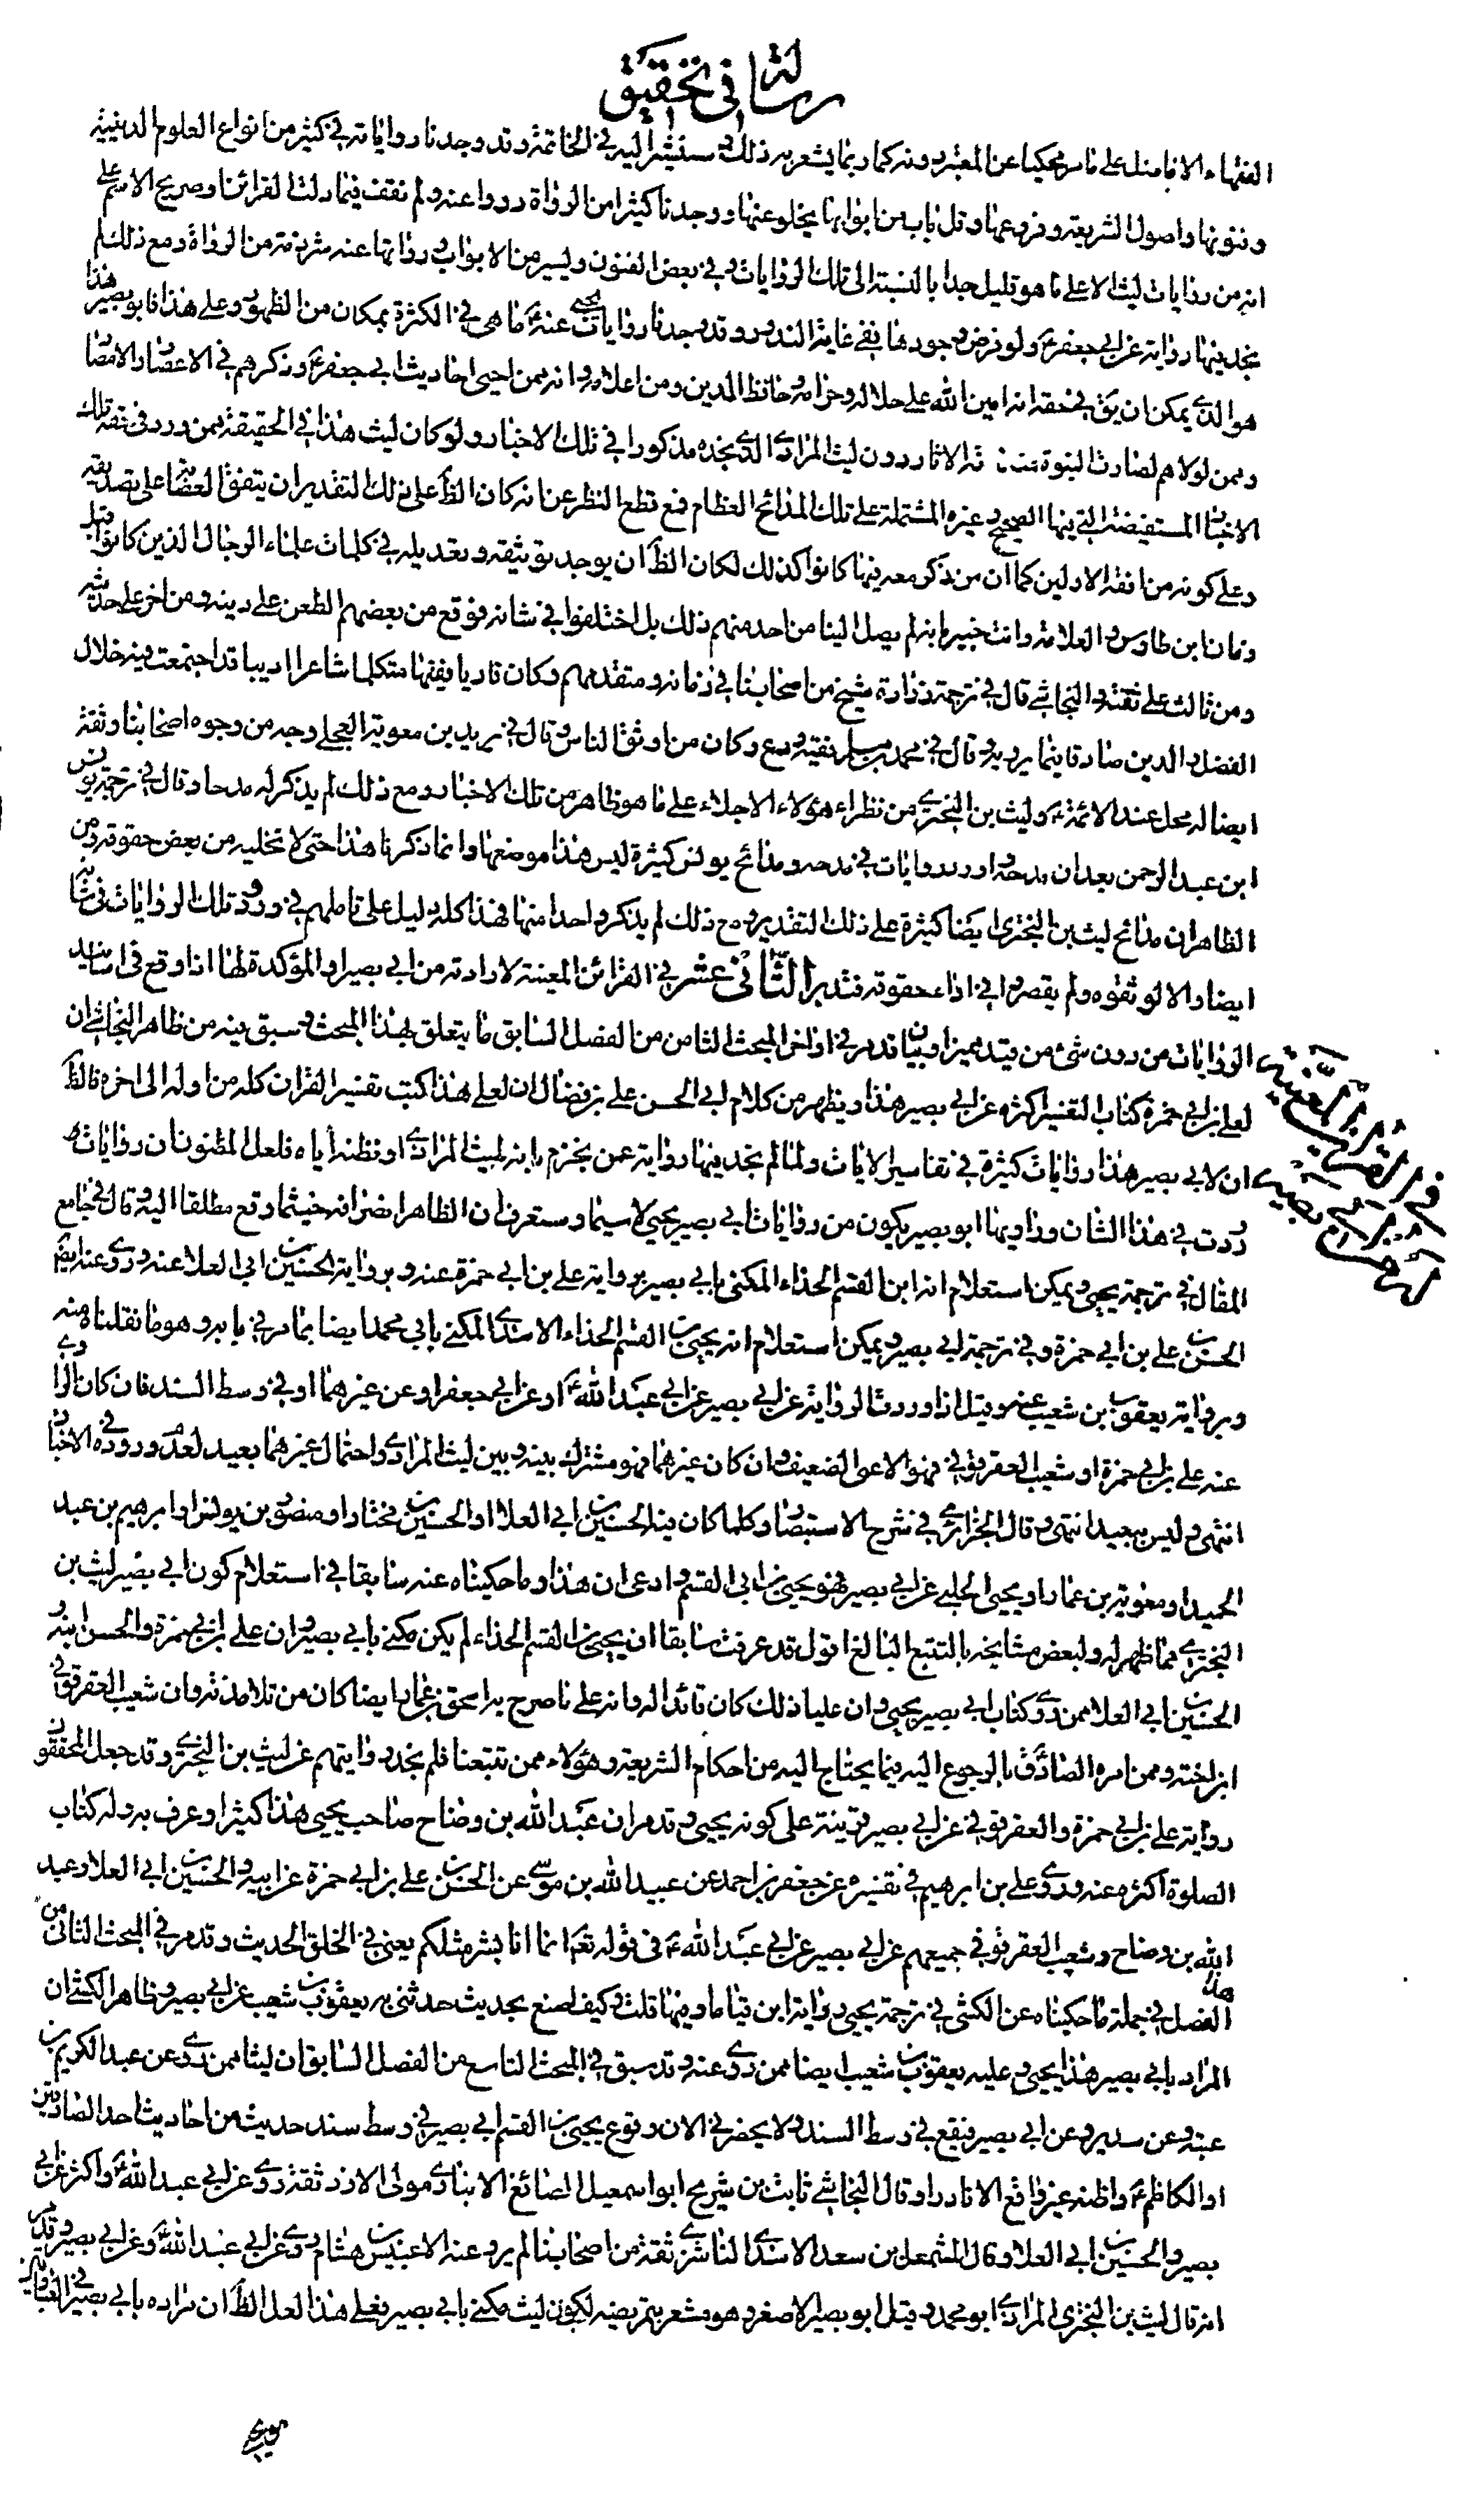 رسالة في تحقيق
الفقهاء الافاضل على ما مر محكيا عن المعتبر وغيره كما ربما يشعر به ذلك وسنشير اليه في الخاتمة وقد وجدنا رواياته في كثير من انواع العلوم الدينية
وفنونها واصول الشريعة وفروعها وقل باب من ابوابها يخلو عنها ووجدنا كثيرا من الرواة رووا عنه ولم نقف فيما دلت القرائن او صريح الاسم على
انه من روايات ليث الا على ما هو قليل جدا بالنسبة الى تلك الروايات وفي بعض الفنون ويسير من الابواب رواتها عنه شرذمة من الرواة ومع ذلك لم
نجد فيها رواية عن ابي جعفرع ولو فرض وجودها ففي غاية الندور وقد وجدنا روايات يحيى عنهع ما هي في الكثرة بمكان من الظهور وعلى هذا فابو بصير هذا
هو الذي يمكن ان يق في حقه انه امين الله على حلاله وحرامه وحافظ الدين ومن اعلامه وانه ممن احيى احاديث ابي جعفرع وذكرهم في الاعصار والامصار
وممن لولاهم لصارت النبوة الاثار دون ليث المرادي الذي نجده مذكورا في تلك الاخبار ولو كان ليث هذا في الحقيقة ممن ورد في حقه تلك
الاخبار المستفيضة التي فيها الصحيح وغيره المشتملة على تلك المدائح العظام فمع قطع النظر عن انه كان الظ على ذلك التقدير ان يتفق العصابة على تصديقه
وعلى كونه من افقه الاولين كما ان من ذكر معه فيها كانوا كذلك لكان الظ ان يوجد توثيقه وتعديله في كلمات علماء الرجال الذين كانوا قبل
زمان ابن طاوس والعلامة وانت خبير بانه لم يصل الينا من احد منهم ذلك بل اختلفوا في شانه فوقع من بعضهم الطعن على دينه ومن اخر على حديثه
ومن ثالث على ثقته والنجاشي قال في ترجمة زرارة شيخ من اصحابنا في زمانه ومتقدمهم وكان قاريا فقيها متكلما شاعرا اديبا قد اجتمعت فيه خلال
الفضل والدين صادقا فيما يرويه وقال في محمد بن مسلم فقيه ورع وكان من اوثق الناس وقال في بريد بن معوية العجلي وجه من وجوه اصحابنا وثقة
ايضا له محل عند الائمةع وليث بن البختري من نظراء هؤلاء الاجلاء على ما هو ظاهر من تلك الاخبار ومع ذلك لم يذكر له مدحا وقال في ترجمة يونس
ابن عبد الرحمن بعد ان مدحه واورد روايات في مدحه ومدائح يونس كثيرة ليس هذا موضعها وانما ذكرنا هذا حتى لا نخليه من بعض حقوقه ومن
الظاهر ان مدائح ليث بن البختري ايضا كثيرة على ذلك التقدير ومع ذلك لم يذكر واحدا منها فهذا كله دليل على تاملهم في ورود تلك الروايات في شانه
ايضا والا لوثقوه ولم يقصروا في اداء حقوقه فتدبر الثاني عشر في القرائن المعينة لارادته من ابي بصير او المؤكدة لها اذا وقع في اسانيد
الروايات من دون شئ من قيد مميز وبيان قد مر في اواخر المبحث الثامن من الفصل السابق ما يتعلق بهذا المبحث وسبق فيه من ظاهر النجاشي ان
لعلي بن ابي حمزة كتاب التفسير اكثره عن ابي بصير هذا ويظهر من كلام ابي الحسن علي بن فضال ان لعلي هذا كتب تفسير القران كله من اوله الى اخره فالظ
ان لابي بصير هذا روايات كثيرة في تفاسير الايات ولما لم نجد فيها رواية عمن نجزم بانه ليث المرادي او نظنه اياه فلعل المظنون ان روايات
وردت في هذا الشان وراويها ابو بصير يكون من روايات ابي بصير يحيى لا سيما وستعرف ان الظاهر انصرافه حيثما وقع مطلقا اليه وقال في جامع
المقال في ترجمة يحيى ويمكن استعلام انه ابن القسم الحذاء المكنى بابي بصير برواية علي بن ابي حمزة عنه وبرواية الحسين بن ابي العلا عنه وروى عنه ايضا
الحسن بن علي بن ابي حمزة وفي ترجمة ابي بصير ويمكن استعلام انه يحيى بن القسم الحذاء الاسدي المكنى بابي محمد ايضا بما مر في بابه وهو ما نقلناه منه
وبرواية يعقوب بن شعيب عنه وقيل اذا وردت الرواية عن ابي بصير عن ابي عبد اللهع او عن ابي جعفر او عن غيرهما او في وسط السند فان كان الراوي
عنه علي بن ابي حمزة او شعيب العقرقوفي فهو الاعمى الضعيف وان كان غيرهما فهو مشترك بينه وبين ليث المرادي واحتمال غيرهما بعيد لعدم وروده في الاخبار
انتهى وليس ببعيد انتهى وقال الجزائري في شرح الاستبصار وكلما كان فيه الحسين بن ابي العلا او الحسين بن مختار او منصور بن يونس او ابرهيم بن عبد
الحميد او معوية بن عمار او يحيى الحلبي عن ابي بصير فهو يحيى بن ابي القسم وادعى ان هذا وما حكيناه عنه سابقا في استعلام كون ابي بصير ليث بن
البختري مما ظهر له ولبعض مشايخه بالتتبع البالغ اقول قد عرفت سابقا ان يحيى بن القسم الحذاء لم يكن مكنى بابي بصير وان علي بن ابي حمزة والحسن ابنه و
الحسين بن ابي العلا ممن روى كتاب ابي بصير يحيى وان عليا ذلك كان قائدا له وانه على ما صرح به اسحق بن عمار ايضا كان من تلامذته وان شعيب العقرقوفي
ابن اخته وممن امره الصادقع بالرجوع اليه فيما يحتاج اليه من احكام الشريعة وهؤلاء ممن تتبعنا فلم نجد روايتهم عن ليث بن البختري وقد جعل المحققون
رواية علي بن ابي حمزة والعقرقوفي عن ابي بصير قرينة على كونه يحيى وقد مر ان عبد الله بن وضاح صاحب يحيى هذا كثيرا وعرف به وله كتاب
الصلوة اكثره عنه وروى علي بن ابرهيم في تفسيره عن جعفر بن احمد عن عبيد الله بن موسى عن الحسن بن علي بن ابي حمزة عن ابيه والحسين بن ابي العلا وعبد
الله بن وضاح وشعيب العقرقوفي جميعهم عن ابي بصير عن ابي عبد اللهع في قوله تع انما انا بشر مثلكم يعني في الخلق الحديث وقد مر في المبحث الثاني من
هذا الفصل في جملة ما حكيناه عن الكشي في ترجمة يحيى رواية ابن قياما وفيها قلت وكيف اصنع بحديث حدثني به يعقوب بن شعيب عن ابي بصير وظاهر الكشي ان
المراد بابي بصير هذا يحيى وعليه يعقوب بن شعيب ايضا ممن روى عنه وقد سبق في المبحث التاسع من الفصل السابق ان ليثا ممن روى عن عبد الكريم بن
عتبة وعن سدير وعن ابي بصير فيقع في وسط السند ولا يحضرني الان وقوع يحيى بن القسم ابي بصير في وسط سند حديث من احاديث احد الصادقين
او الكاظمع واظنه غير واقع الا نادرا وقال النجاشي ثابت بن شريح ابو اسمعيل الصائغ الانباري مولى الازد ثقة روى عن ابي عبد اللهع واكثر عن ابي
بصير والحسين بن ابي العلا وقال المشمعل بن سعد الاسدي الناشري ثقة من اصحابنا لم يرو عنه الا عبيس بن هشام روى عن ابي عبد اللهع وعن ابي بصير وقد مر
انه قال ليث بن البختري المرادي ابو محمد وقيل ابو بصير الاصغر وهو مشعر بتمريضه لكون ليث مكنى بابي بصير فعلى هذا لعل الظ ان مراده بابي بصير في
في القرائن المعينة
لابي بصير